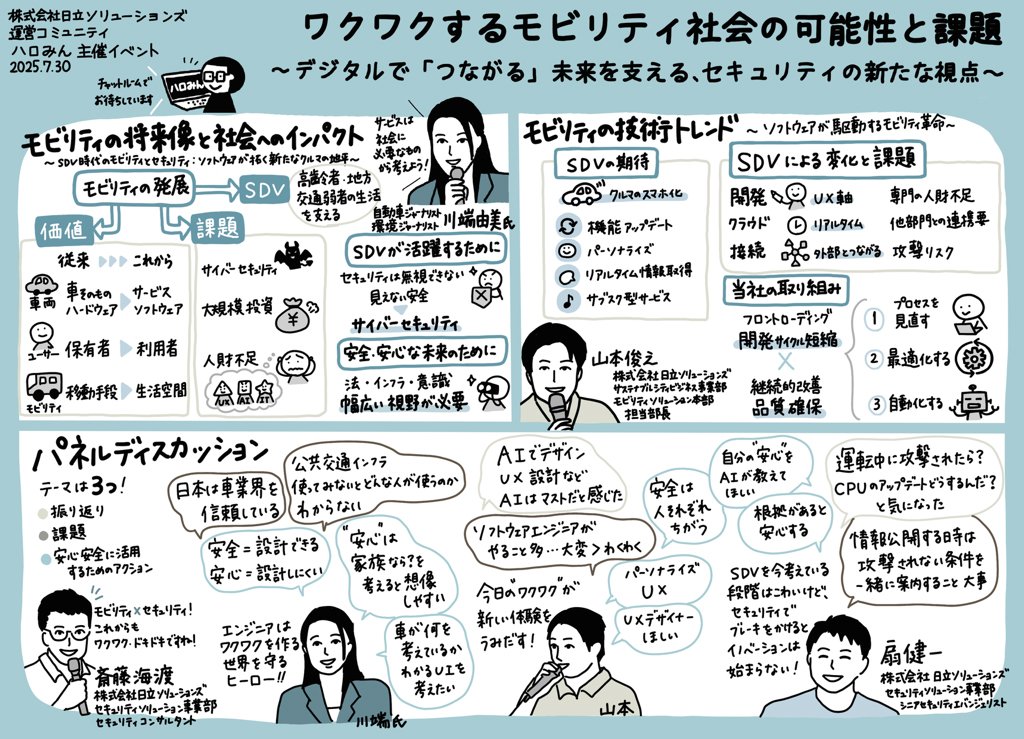 株式会社日立ソリューションズ
運営コミュニティ
ハロみん 主催イベント
2025.7.30
チャットルームで
お待ちしています
ハロみん
ワクワクするモビリティ社会の可能性と課題
～デジタルで「つながる」未来を支える、セキュリティの新たな視点～
モビリティの将来像と社会へのインパクト
～SDV時代のモビリティとセキュリティ:ソフトウェアが拓く新たなクルマの地平～
サービスは
社会に
必要なもの
から考えよう!
モビリティの発展
SDV
高齢者・地方
交通弱者の生活
を支える
自動車ジャーナリスト
環境ジャーナリスト
川端由美氏
価値
課題
従来
これから
車両
車そのもの
ハードウェア
サービス
ソフトウェア
ユーザー
保有者
利用者
モビリティ
移動手段
生活空間
サイバーセキュリティ
大規模投資
¥
人財不足
SDVが活躍するために
セキュリティは無視できない
見えない安全
サイバーセキュリティ
安全・安心な未来のために
法・インフラ・意識
幅広い視野が必要
モビリティの技術トレンド
～ソフトウェアが駆動するモビリティ革命～
SDVの期待
クルマのスマホ化
機能アップデート
パーソナライズ
リアルタイム情報取得
サブスク型サービス
SDVによる変化と課題
開発
UX軸
専門の人財不足
クラウド
リアルタイム
他部門との連携要
接続
外部とつながる
攻撃リスク
当社の取り組み
フロントローディング
開発サイクル短縮
×
継続的改善
品質確保
1 プロセスを
見直す
2 最適化する
3 自動化する
山本俊え
株式会社日立ソリューションズ
サステナブルシティビジネス事業部
モビリティソリューション本部
担当部長
パネルディスカッション
テーマは3つ!
振り返り
課題
安心安全に活用
するためのアクション
日本は車業界を
信頼している
公共交通インフラ
使ってみないとどんな人が使うのか
わからない
安全=設計できる
安心=設計しにくい
"安心"は
家族なら?を
考えると想像
しやすい
車が何を
考えているか
わかるUIを
考えたい
モビリティ×セキュリティ!
これからも
ワクワク、ドキドキですね!
斎藤海渡
株式会社日立ソリューションズ
セキュリティソリューション事業部
セキュリティコンサルタント
エンジニアは
ワクワクを作る
世界を守る
ヒーロー!!
川端氏
AIでデザイン
UX設計など
AIはマストだと感じた
ソフトウェアエンジニアが
やること多…大変>わくわく
今日の"ワクワク"が
新しい体験を
うみだす!
安全は
人それぞれ
ちがう
パーソナライズ
UX
UXデザイナー
ほしい
山本
自分の"安心"を
AIが教えて
ほしい
根拠があると
安心する
運転中に攻撃されたら?
CPUのアップデートどうするんだ?
と気になった
情報公開する時は
攻撃されない条件を
一緒に案内すること大事
SDVを今考えている
段階はこわいけど、
セキュリティで
ブレーキをかけると
イノベーションは
始まらない!
扇健一
株式会社日立ソリューションズ
セキュリティソリューション事業部
シニアセキュリティエバンジェリスト